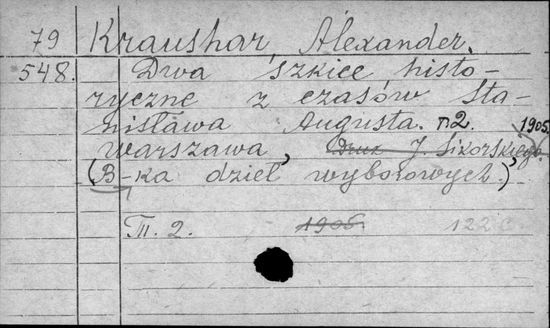 79 Kraushar, Alexander.
548. Dwa szkice histo-
ryczne z czasów Sta-
nisława Augusta. T. 2. 1905.
Warszawa, Druk J. Sikorskiego.
(B-ka dzieł wyborowych.)
T. 2. 1905 122